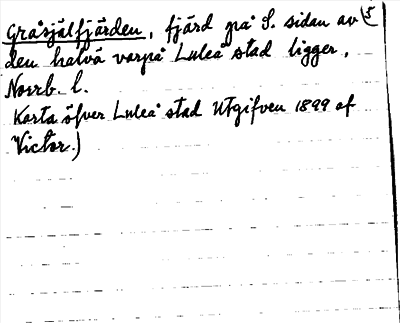 Gråsjälfjärden, fjärd på S. sidan av
den halvö varpå Luleå stad ligger,
Norrb. l.
Karta öfver Luleå stad Utgifven 1899 af
Victor.)